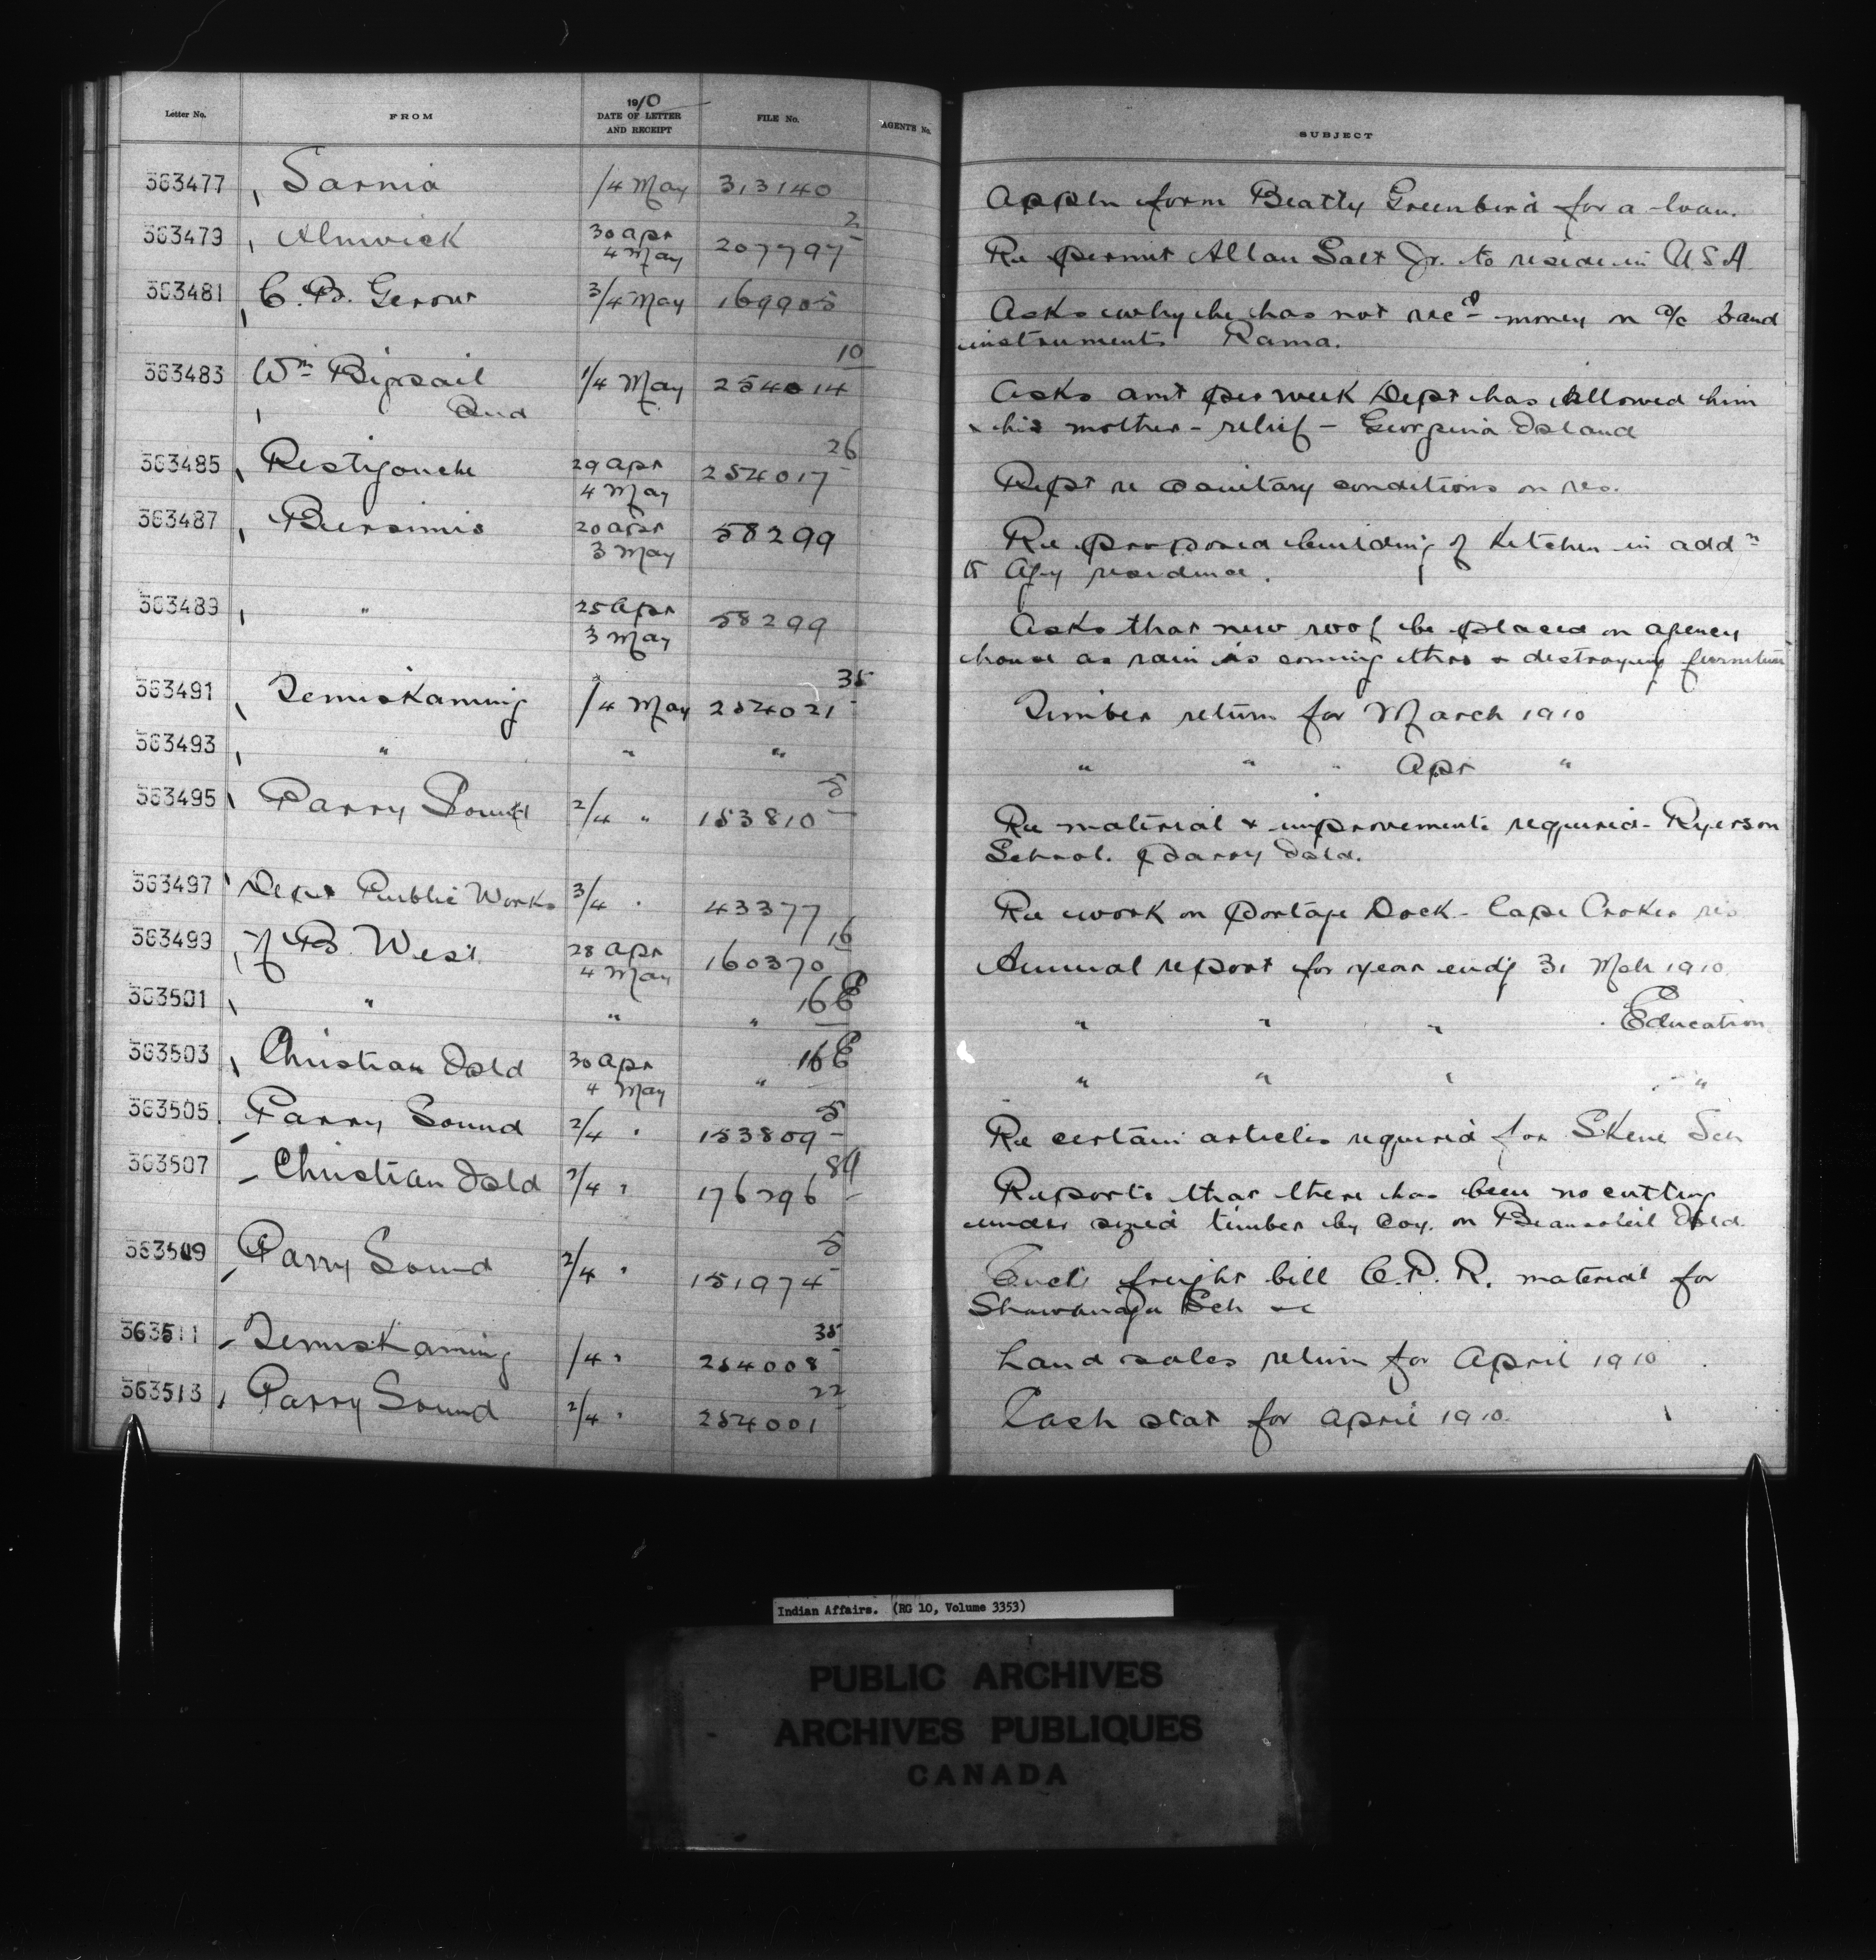 Letter No. FROM 1910 DATE OF LETTER AND RECEIPT FILE No. AGENTS No. SUBJECT
363477 Sarnia /4 May 313140 Appln form Beatty Greenbird for a loan.
363479 Alnwick 30 Apr 4 May 207797-2 Re permit Allan Salt Jr. to reside in U.S.A.
363481 C. B. Gerow 3/4 May 169905 Asks why he has not recd money on a/c band
instruments Rama.
363483 Wm Bigsail 1/4 May 254014-10 Asks amt per week Dept has allowed him
Ind & his mother - relief - Georgina Island
363485 Restigouche 29 Apr 4 May 254017-26 Rept re sanitary conditions on res.
363487 Bersimis 20 Apr 3 May 58299 Re proposed building of kitchen in addn
to Agy residence.
363489 " 25 Apr 3 May 58299 Asks that new roof be placed on agency
house as rain is coming thro & destroying furniture
363491 Temiskaming /4 May 254021-35 Timber return for March 1910
363493 " " " " " " Apr "
363495 Parry Sound 2/4 " 153810-5 Re material & improvements required - Ryerson
School. Parry Isld.
363497 Dept Public Works 3/4 " 43377 Re work on portage Dock - Cape Croker res
363499 B. West 28 Apr 4 May 160370-16 Annual report for year endg 31 Mch 1910
363501 " " " 16E " " " Education
363503 Christian Isld 30 Apr 4 May " 16E " " " "
363505 Parry Sound 2/4 " 153809-5 Re certain articles required for Skene Sch
363507 Christian Isld 2/4 " 176296-8 Reports that there has been no cutting
under sized timber by Coy. on Beausoleil Isld.
363509 Parry Sound 2/4 " 151974-5 Encls freight bill C.P.R. material for
Shawanaga Sch &c
363511 Temiskaming /4 " 254008-35 Land sales return for April 1910
363513 Parry Sound 2/4 " 254001-22 Cash stat for April 1910.
Indian Affairs. (RG 10, Volume 3353)
PUBLIC ARCHIVES
ARCHIVES PUBLIQUES
CANADA